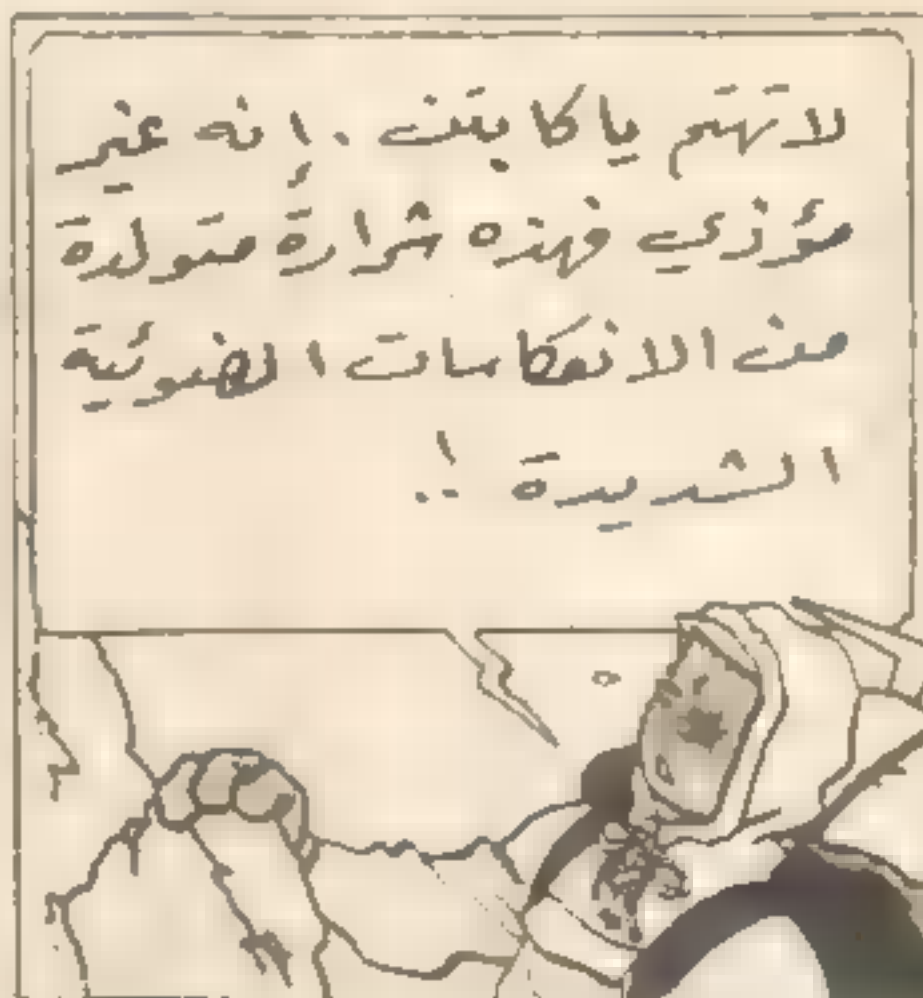 لا تهتم يا كابتن . إنه غير
مؤذي فهذه شرارة متولدة
من الانعكاسات الضوئية
الشديدة !..